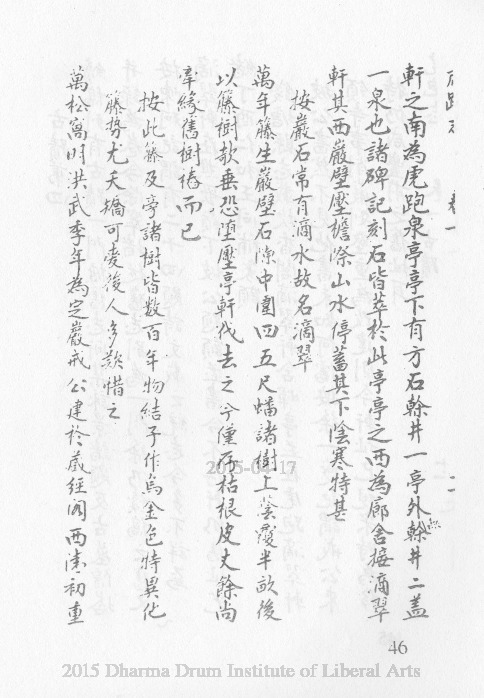 軒之南為虎跑泉亭亭下有方石榦井一亭外無榦井二蓋
一泉也諸碑記刻石皆萃於此亭亭之西為廊舍接滴翠
軒其西巖壁壓檐際山水停蓄其下陰寒特甚
按巖石常有滴水故名滴翠
萬年籐生巖壁石隙中圍四五尺蟠諸樹上蔭覆半畝後
以籐樹欹垂恐墮壓亭軒伐去之今僅存枯根皮丈餘尚
牽緣舊樹樁而已
按此籐及亭諸樹皆數百年物結子作烏金色特異化
籐勢尤夭矯可愛後人多歎惜之
萬松窩明洪武季年為定巖戒公建於藏經閣西清初重
卷一
二
46
2015-04-17
2015 Dharma Drum Institute of Liberal Arts